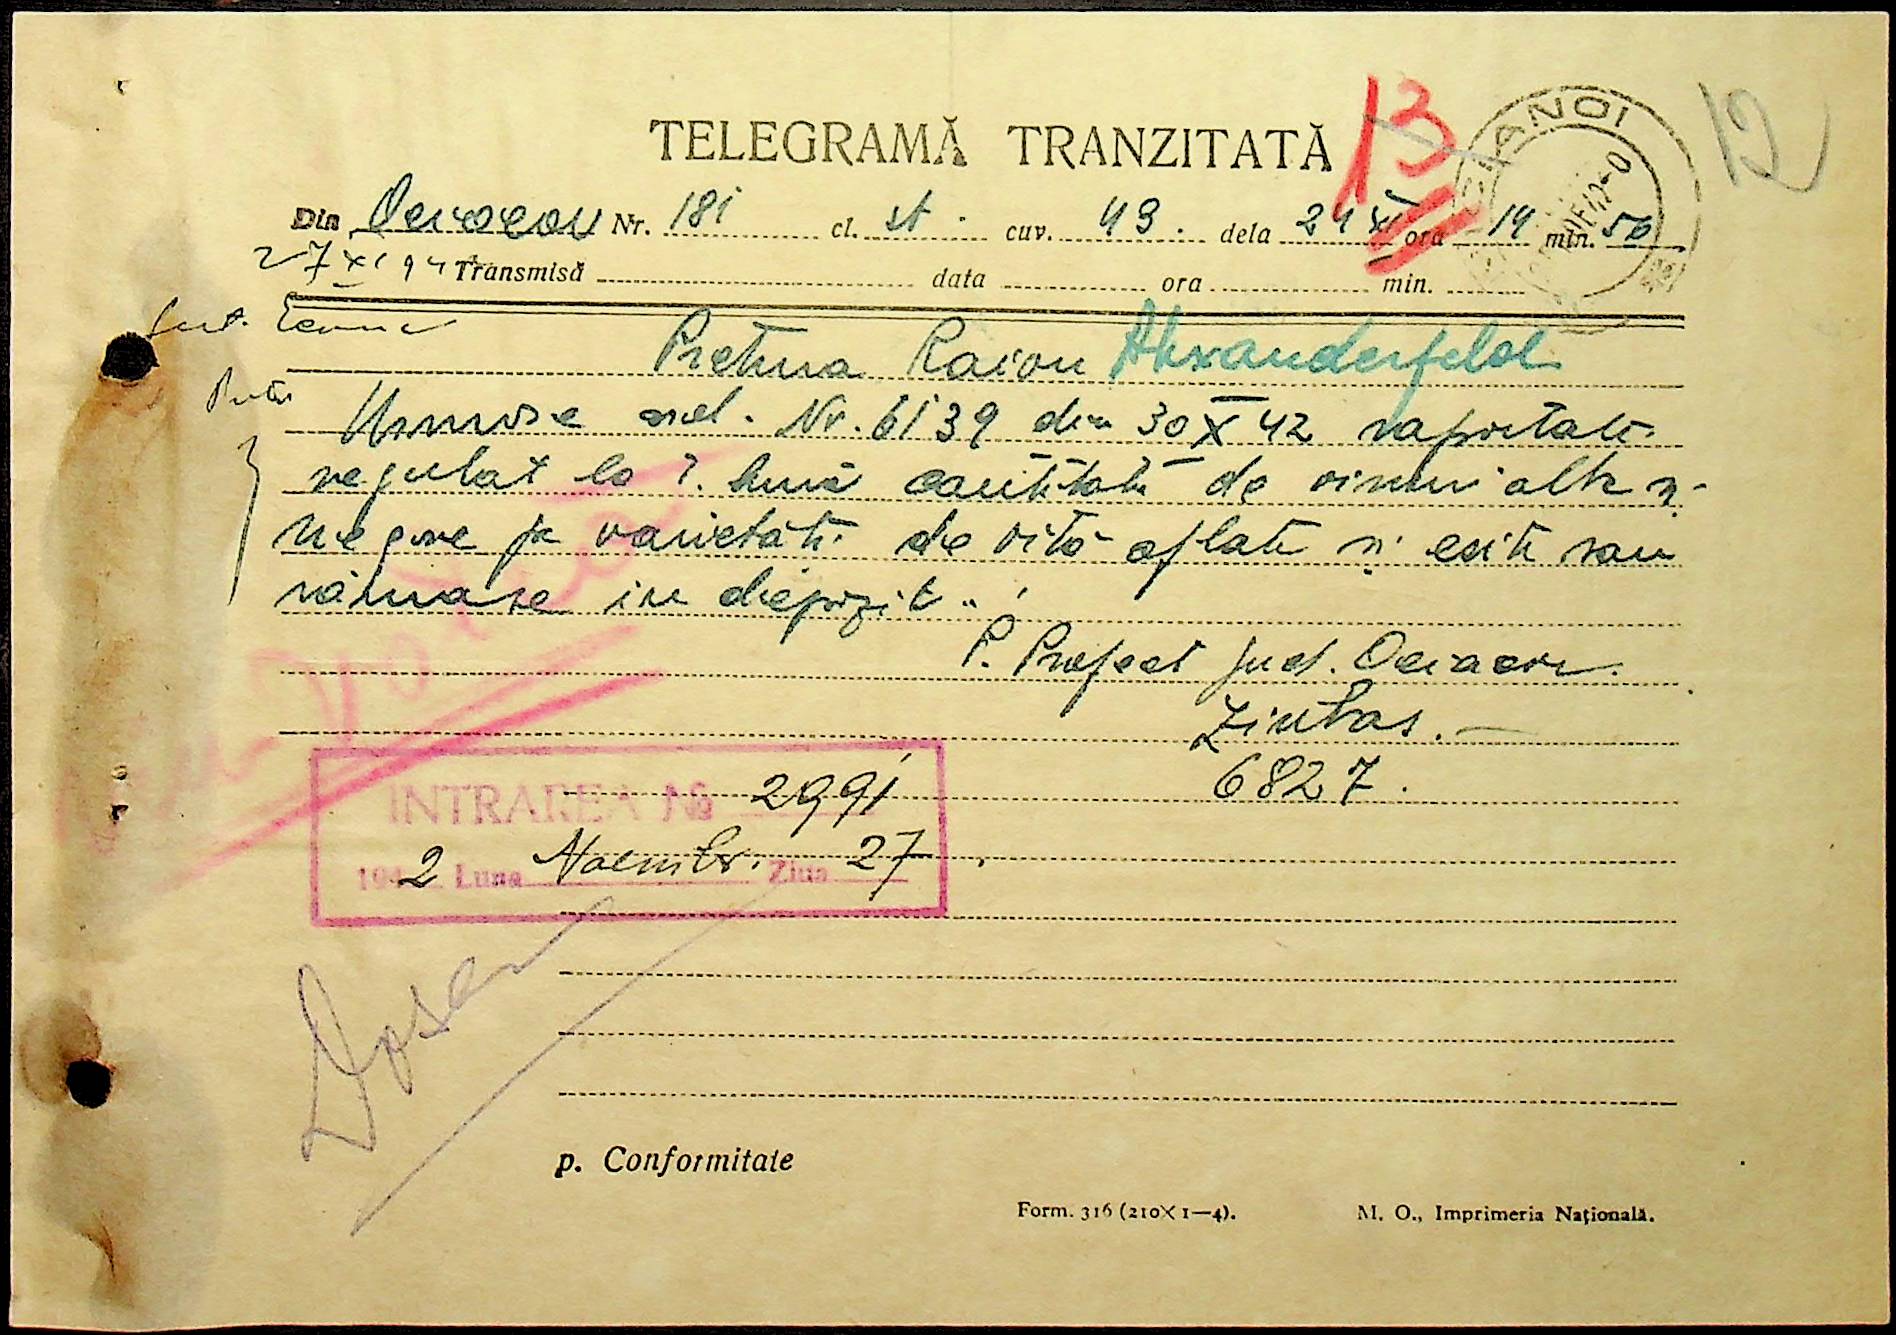 TELEGRAMĂ TRANZITATĂ
13
12
CIANOI
Din Oceacov Nr. 181 cl. st. cuv. 43. dela 24 XI ora 14 min. 50
27 XI 94 Transmisă data ora min.
Pretura Raion Alexanderfeld
Urmare ord. Nr. 6139 din 30 X 42 raportati
regulat la 1. lună cantitati de vinuri albe și
negre pe varietăti de vită aflate și esite sau
rămase in depozit.
P. Prefect Jud. Oceacov.
6827.
INTRAREA № 2991
1942 Luna Noembr. Ziua 27
Dosar
p. Conformitate
Form. 316 (210X1—4). M. O., Imprimeria Națională.